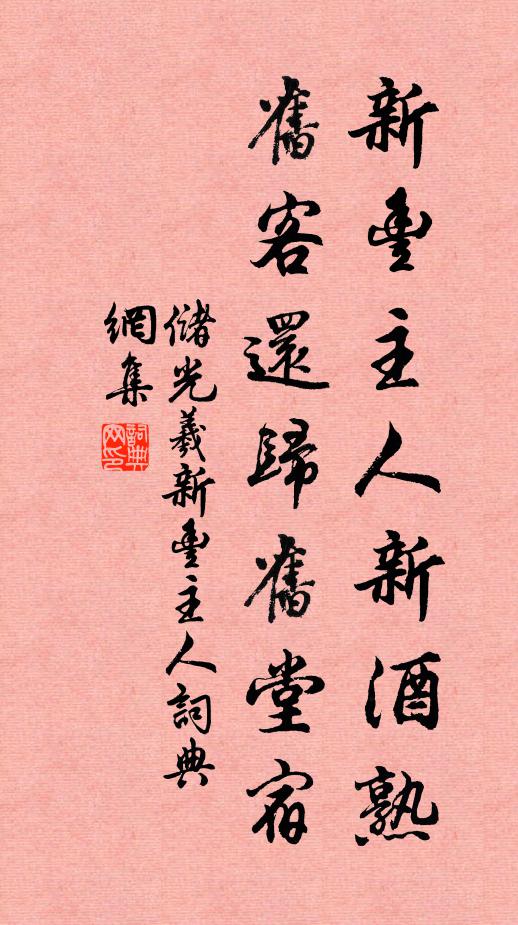 新豐主人新酒熟
舊客還歸舊堂宿
儲光羲新豐主人詞典
網集
詞典網印